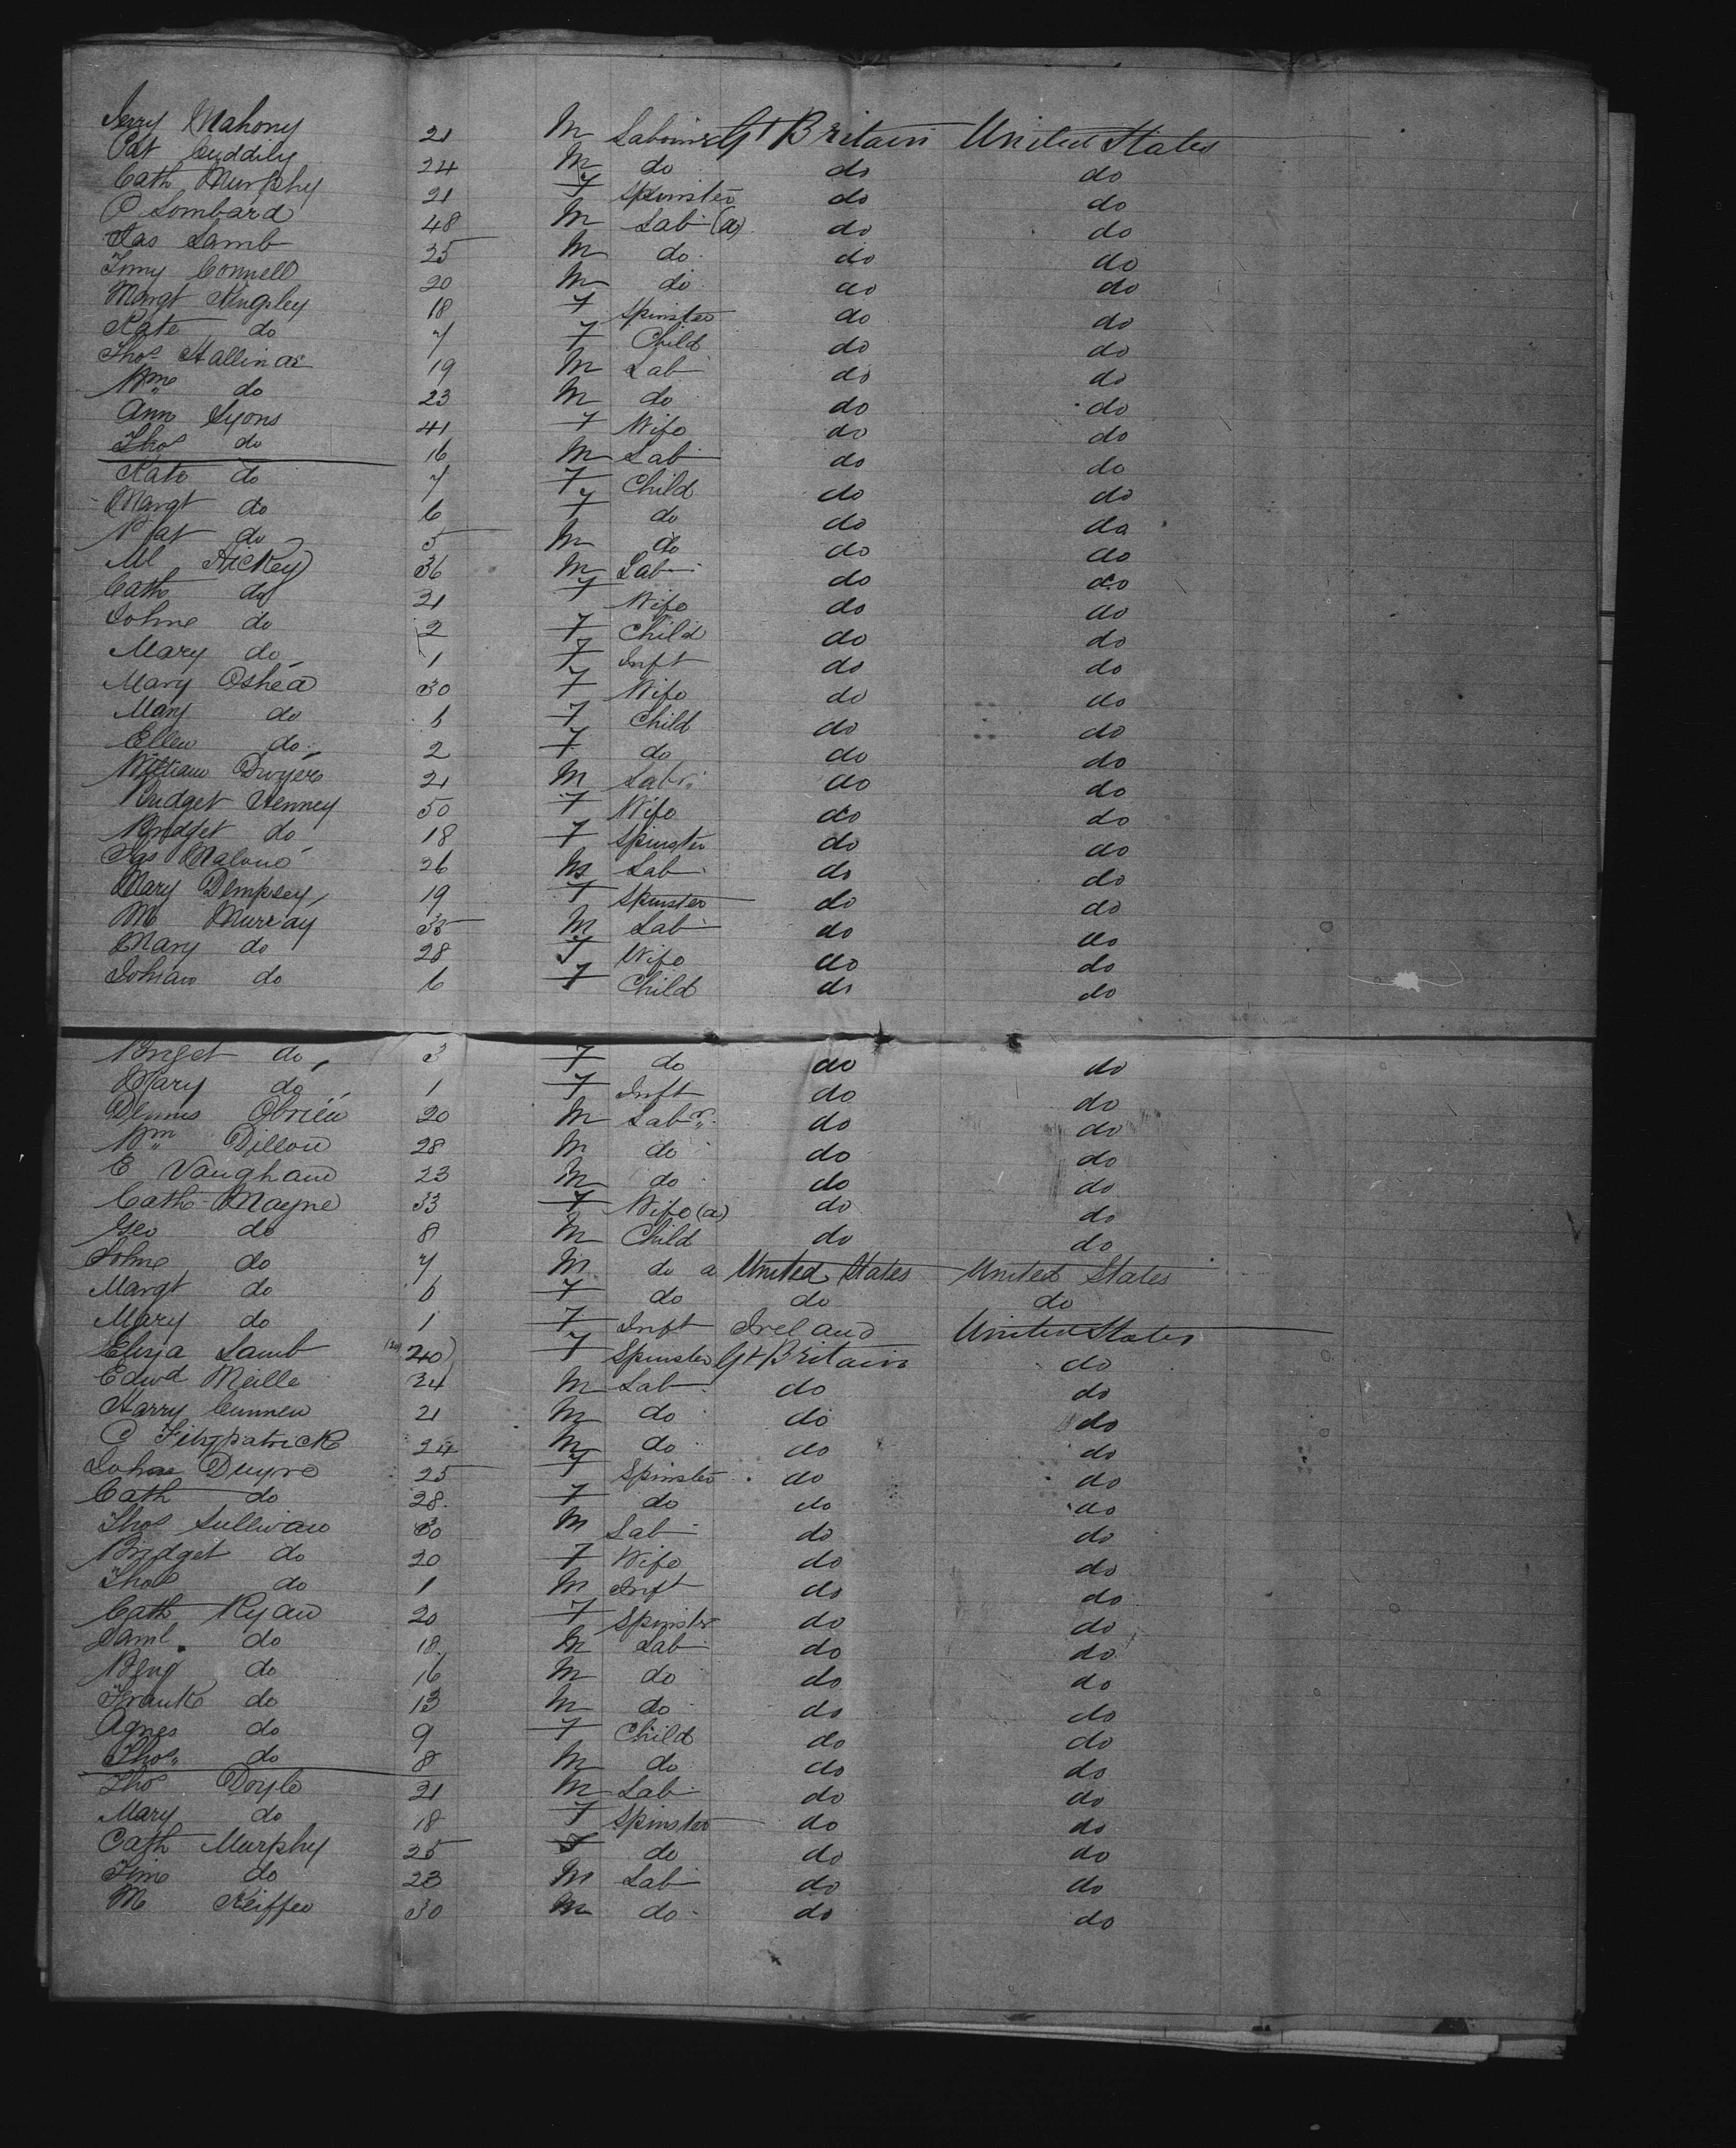 Jerry Mahony 21 M Labourer Gt Britain United States
Pat Cuddily 24 M do do do
Cath Murphy 21 F Spinster do do
C Lombard 48 M Lab (a) do do
Jas Lamb 25 M do do do
Timy Connell 20 M do do do
Margt Kingsley 18 F Spinster do do
Kate do 7 F Child do do
Thos Hallinas 19 M Lab do do
Wm do 23 M do do do
Ann Lyons 41 F Wife do do
Thos do 16 M Lab do do
Kate do 7 F Child do do
Margt do 6 F do do do
Pat do 5 M do do do
Ml Hickey 36 M Lab do do
Cath do 21 F Wife do do
Johne do 2 F Child do do
Mary do 1 F Inft do do
Mary Oshea 30 F Wife do do
Mary do 6 F Child do do
Ellen do 2 F do do do
William Dwyer 21 M Labr do do
Bridget Henney 50 F Wife do do
Bridget do 18 F Spinster do do
Jas Malone 26 M Lab do do
Mary Dempsey 19 F Spinster do do
M Murray 35 M Lab do do
Mary do 28 F Wife do do
Johan do 6 F Child do do
Briget do 3 F do do do
Mary do 1 F Inft do do
Dennis Obrien 20 M Labr do do
Wm Dillon 28 M do do do
E Vaughan 23 M do do do
Cath Mayne 33 F Wife (a) do do
Geo do 8 M Child do do
Johne do 7 M do a United States United States
Margt do 6 F do do do
Mary do 1 F Inft Ireland United States
Eliza Lamb (20) 20 F Spinster Gt Britain do
Edwd Meille 34 M Lab do do
Harry Cunnen 21 M do do do
C Fitzpatrick 24 M do do do
Johne Duyre 25 F Spinster do do
Cath do 28 F do do do
Thos Sullivan 30 M Lab do do
Bridget do 20 F Wife do do
Thos do 1 M Inft do do
Cath Ryan 20 F Spinster do do
Daml do 18 M Lab do do
Benj do 16 M do do do
Frank do 13 M do do do
Agnes do 9 F Child do do
Thos do 8 M do do do
Thos Doyle 21 M Lab do do
Mary do 18 F Spinster do do
Cath Murphy 25 F do do do
Jim do 23 M Lab do do
M Keiffer 30 M do do do